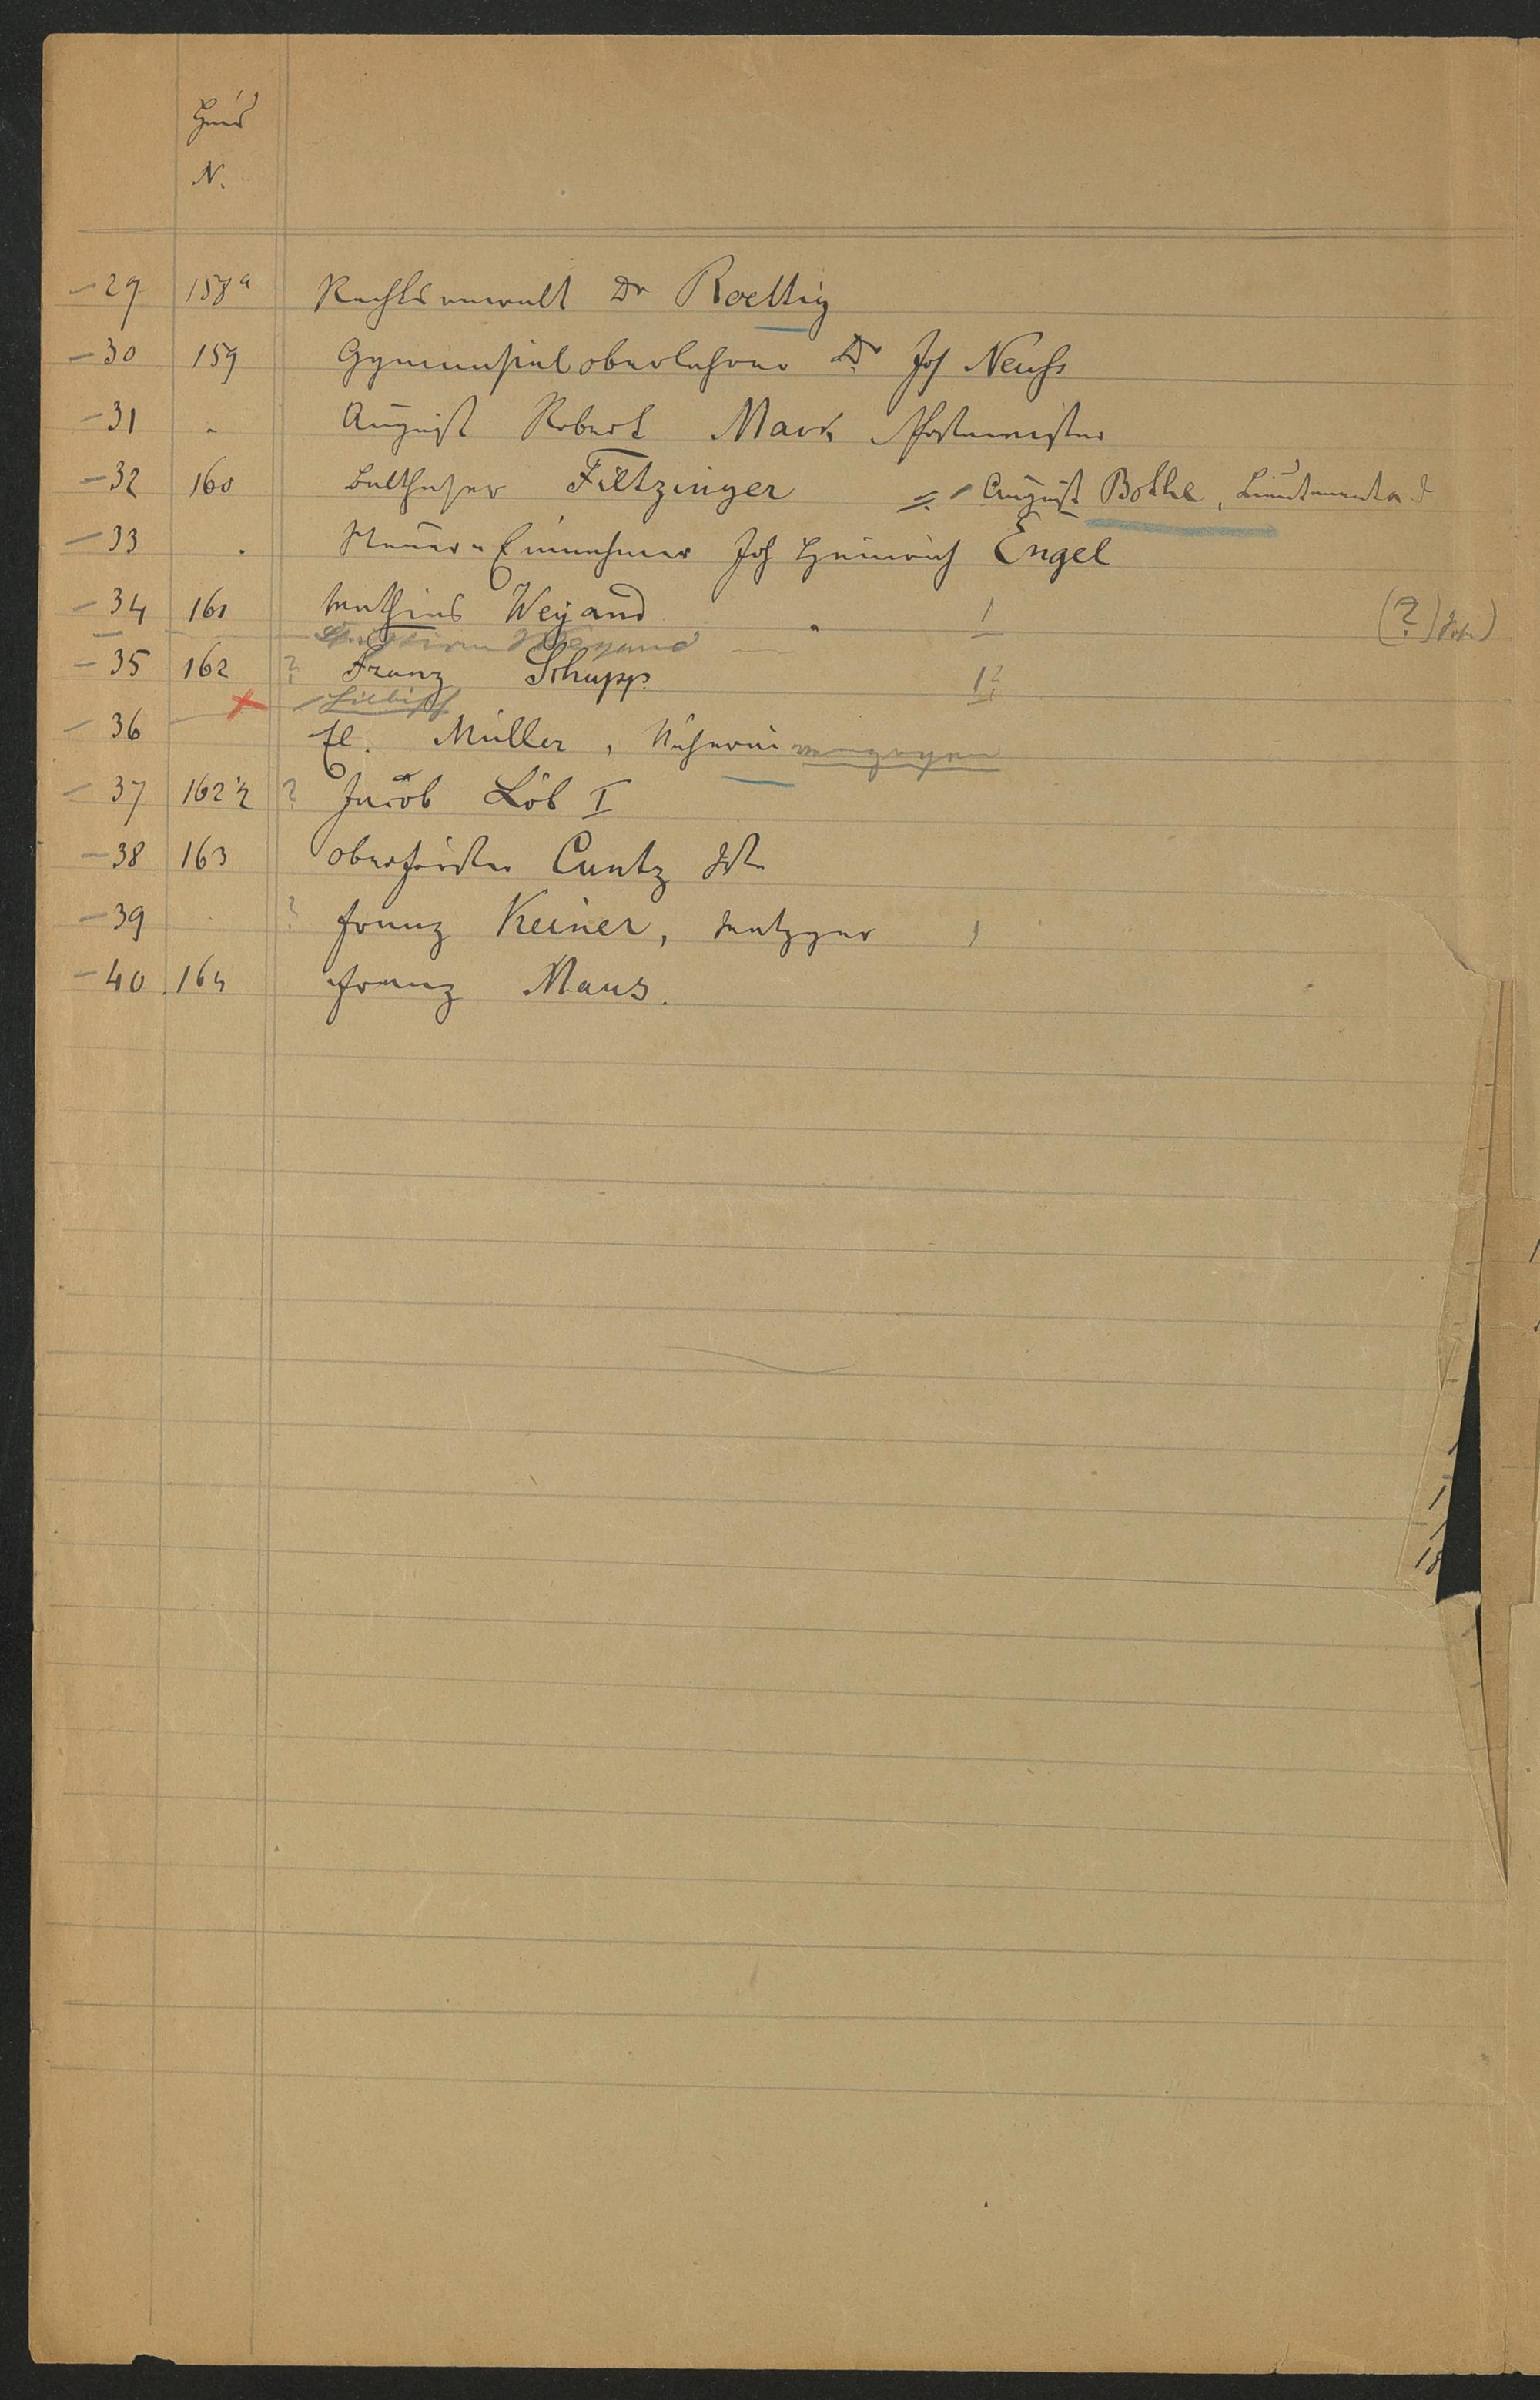 Haus
N.
29 158a Rechtsanwalt Dr Roettig
30 159 Gymnasialoberlehrer Dr Jos Neuhs
31 " August Robert Mark Postmeister
32 160 Balthaser Filtzinger August Bothe, Lieutenant a D
33 " Steuer-Einnehmer Joh Heinrich Engel
34 161 Mathias Weyand 1 (?)
Weyand
35 162 ? Franz Schupp 1?
36 fl. Müller, Näherin verzogen
37 162½ ? Jacob Löb I
38 163 Oberförster Cuntz
39 ? Franz Keiner, Metzger 1
40 164 Franz Maus.